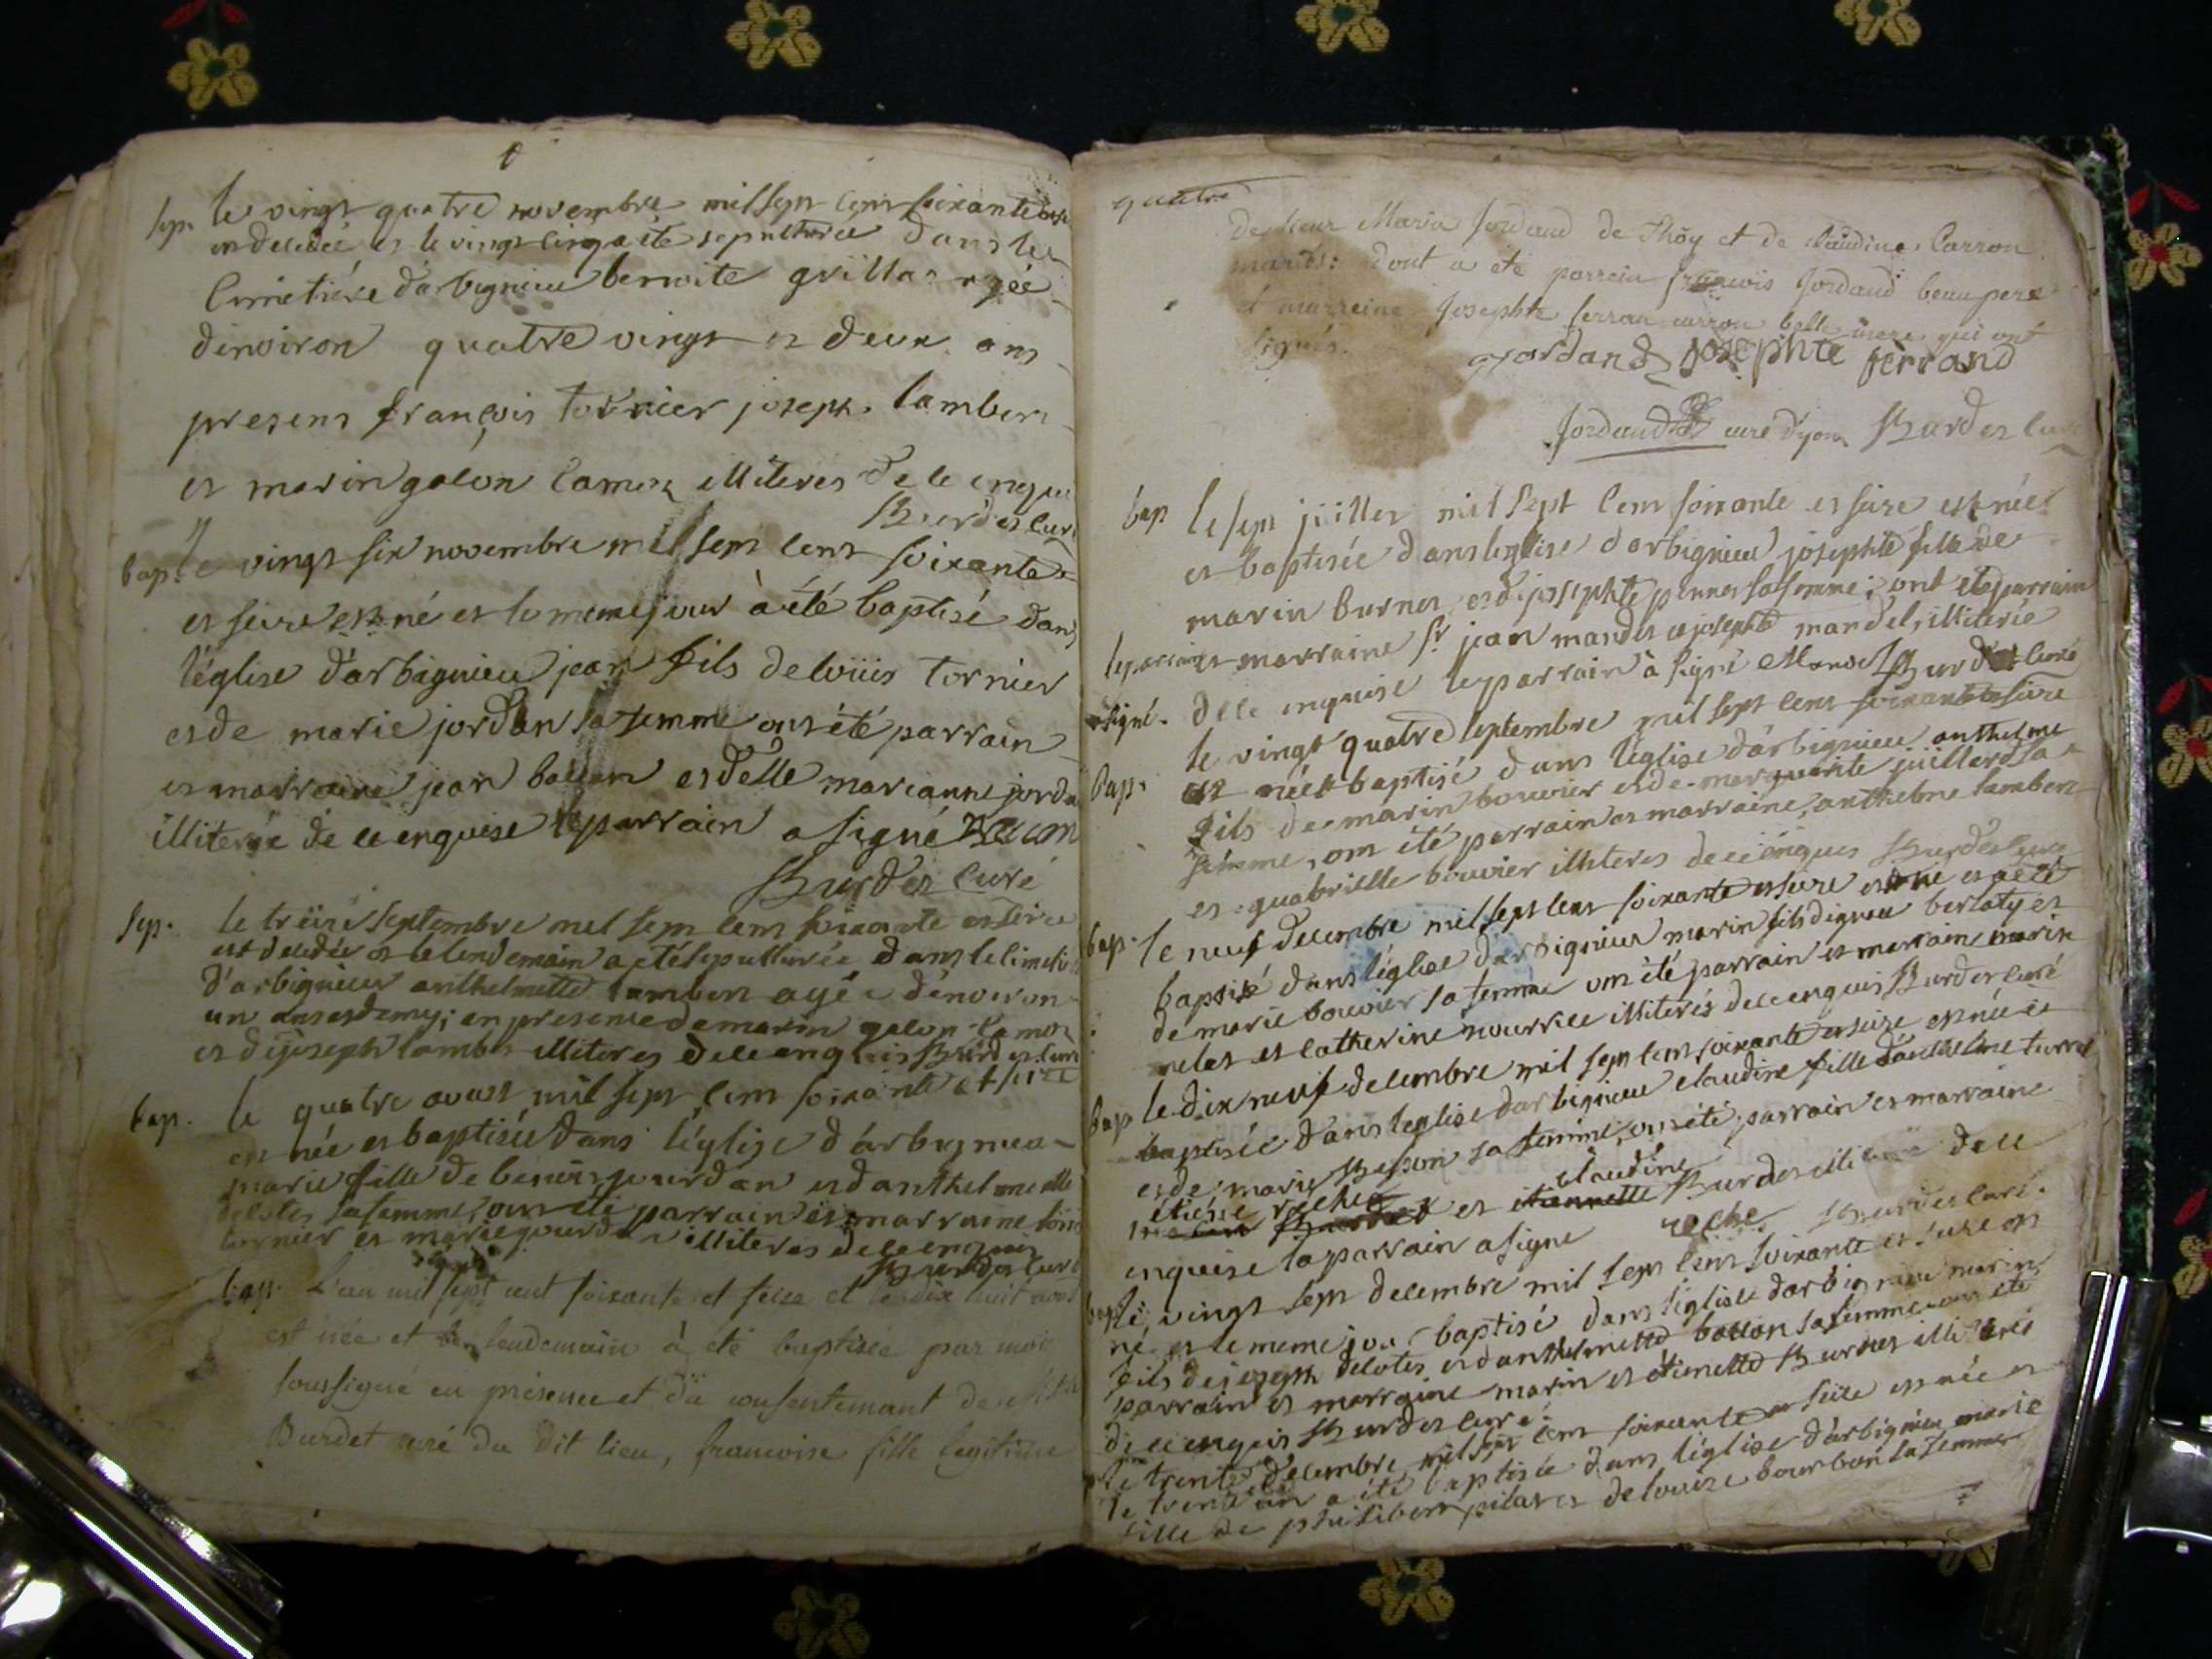 sep. le vingt quatre novembre mil sept cent soixante
en decedée et le vingt cinq a été sepulturée dans le
cimetière d'arbignieu benoite agée
d'environ quatre vingt et deux ans
presens françois tornier joseph lambert
et marin galon lamoz illiterés de ce enquis
Burdet curé
bap. le vingt six novembre mil sept cent soixante
et seize est né et le meme jour à été baptisé dans
l'église d'arbignieu jean fils de louis tornier
et de marie jordan sa femme ont été parrain
et marraine jean et delle marianne
illiterée de ce enquise le parrain a signé
Burdet curé
sep. le treize septembre mil sept cent soixante et seize
est decedée et le lendemain a été sepulturée dans le
d'arbignieu anthelmette lambert agée d'environ
un ans et demy; en presence de marin galon lamoz
et de joseph lambert illiterés de ce enquis Burdet curé
bap. le quatre aoust mil sept cent soixante et seize
est née et baptisée dans l'église d'arbignieu
marie fille de benoit jourdan et d'anthelmette
delotes sa femme, ont été parrain et marraine
tornier et marie jourdan illiterés de ce enquis
Burdet curé
bap. L'an mil sept cent soixante et seize et le dix huit aout
est née et le lendemain à été baptisée par moi
soussigné en présence et du consentement de
Burdet curé du dit lieu, francoise fille legitime
quatre
de sieur Marin Jordand de Thoÿ et de Claudine Carron
mariés: dont a été parrein francois Jordand beau pere
et marreine Josephte ferran carron belle mere qui ont
signés.
Jordand Josephte ferrand
Jordand curé d'yon Burdet curé
bap le sept juillet mil sept cent soixante et seize est née
et baptisée dans leglise d'arbignieu josephte fille de
marin burnet et de josephte pennet sa femme; ont été parrain
et marraine sr jean mandet et josephte mandet, illiterée
de ce enquise le parrain à signé Mandet Burdet curé
le parrain
a signé.
Bap. le vingt quatre septembre mil sept cent soixante et seize
est né et baptisé dans l'église d'arbignieu anthelme
fils de marin bouvier et de marguerite juillerd sa
femme, ont été parrain et marraine, anthelme lambert
et gabrielle bouvier illiterés de ce enquis Burdet curé
bap. le neuf decembre mil sept cent soixante et seize est né et a été
baptisé dans l'église d'arbignieu marin fils d'ignace et
de marie bouvier sa femme ont été parrain et marraine marin
et catherine nourrice illiterés de ce enquis Burdet curé
bap le dix neuf decembre mil sept cent soixante et seize est née et
baptisée dans leglise d'arbignieu claudine fille d'anthelme
et de marie sa femme, ont été parrain et marraine
étiene roche claudine
et etiennette Burdet illiterée de ce
enquise la parrain a signé roche Burdet curé.
bap le vingt sept decembre mil sept cent soixante et seize est
né et le meme jour baptisé dans l'église d'arbignieu marin
fils de joseph delotes et d'anthelmette ballon sa femme ont été
parrain et marraine marin et etienette Burnet illiterés
de ce enquis Burdet curé.
le trente decembre mil sept cent soixante et seize est née et
le trente un a été baptisée dans l'église d'arbignieu marie
fille de philibert pilat et de louise bourbon sa femme